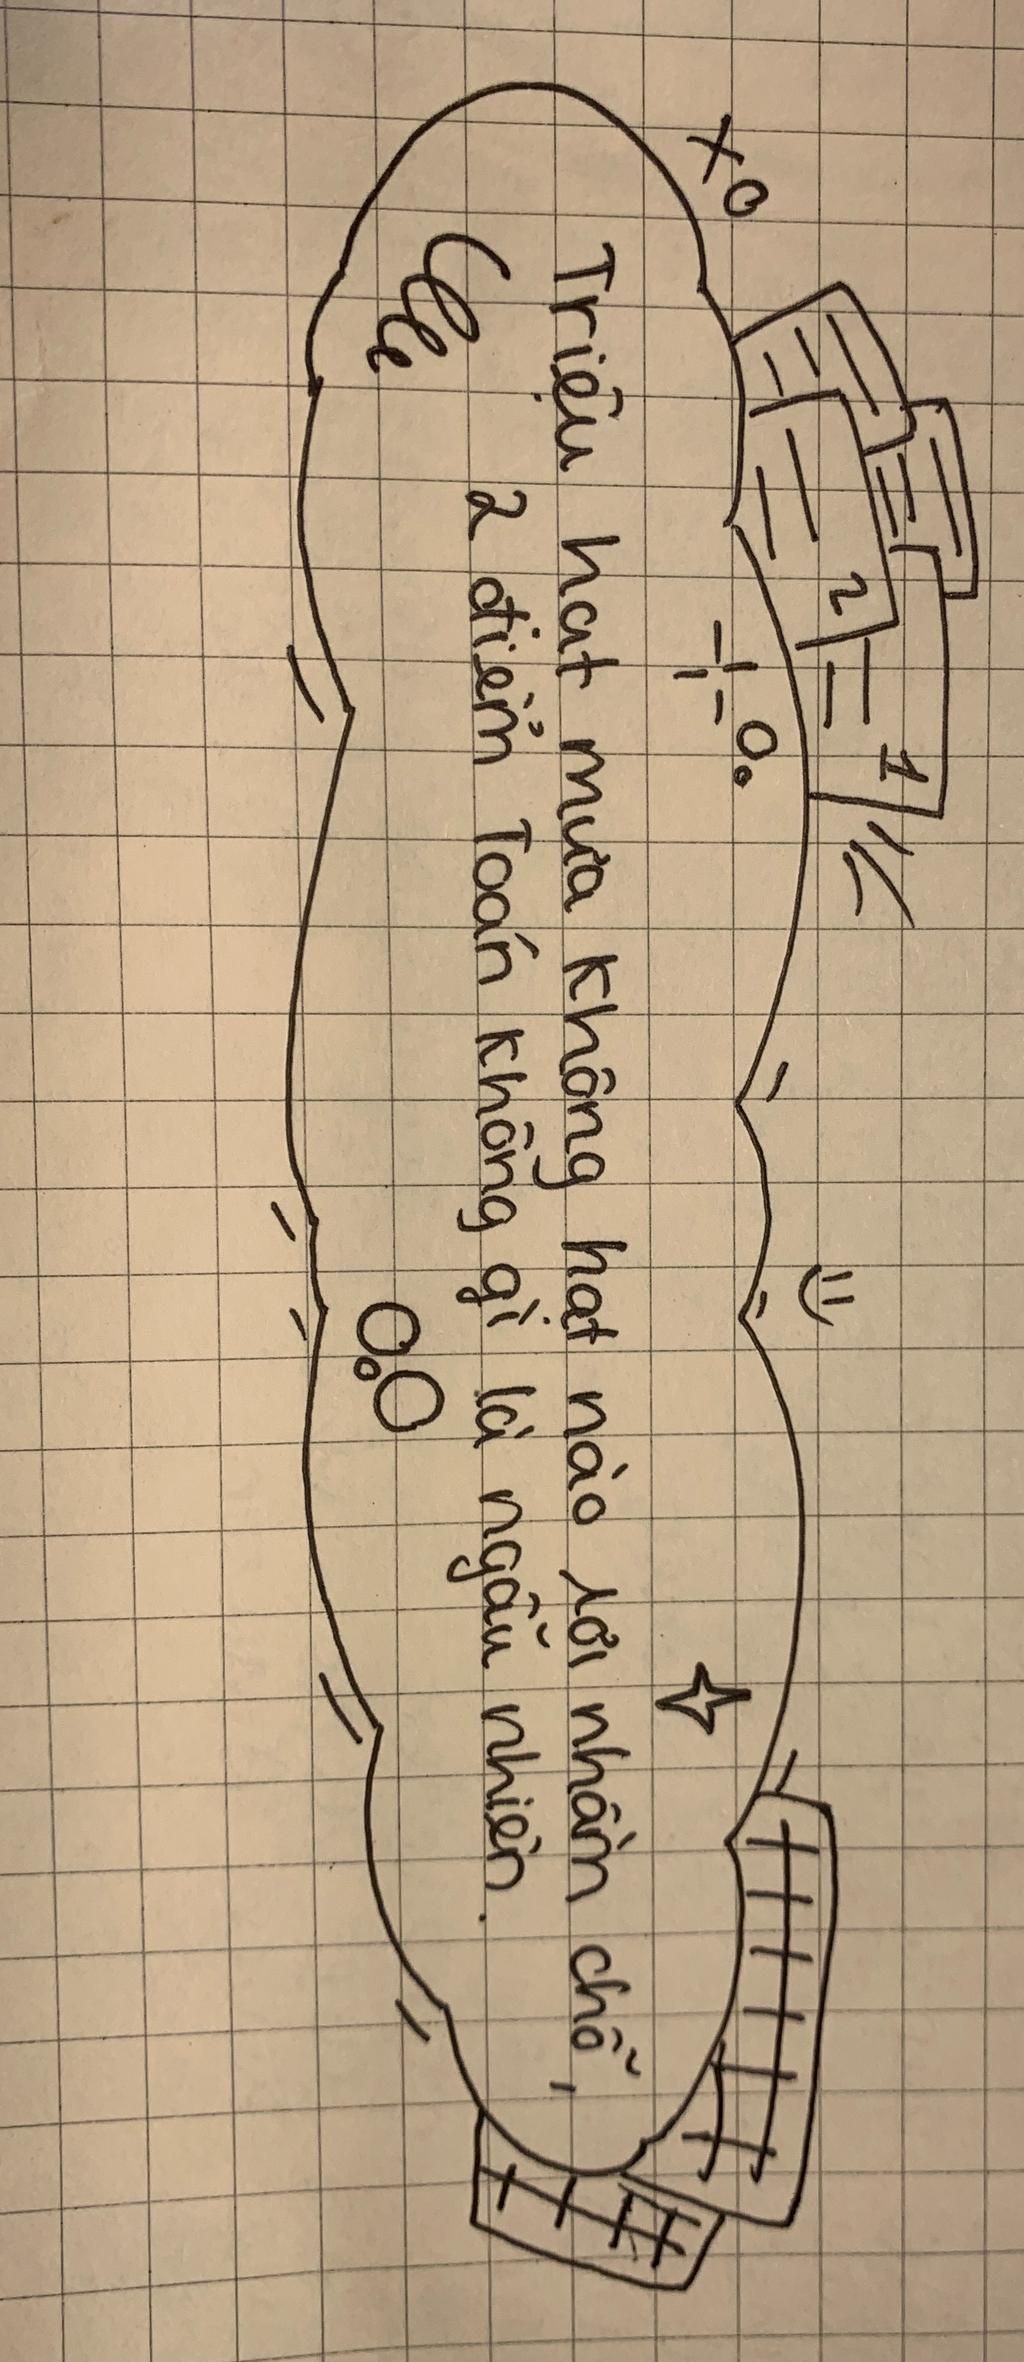 Triệu hạt mưa không hạt nào rơi nhầm chỗ,
2 điểm Toán không gì là ngẫu nhiên.
2
1
xo